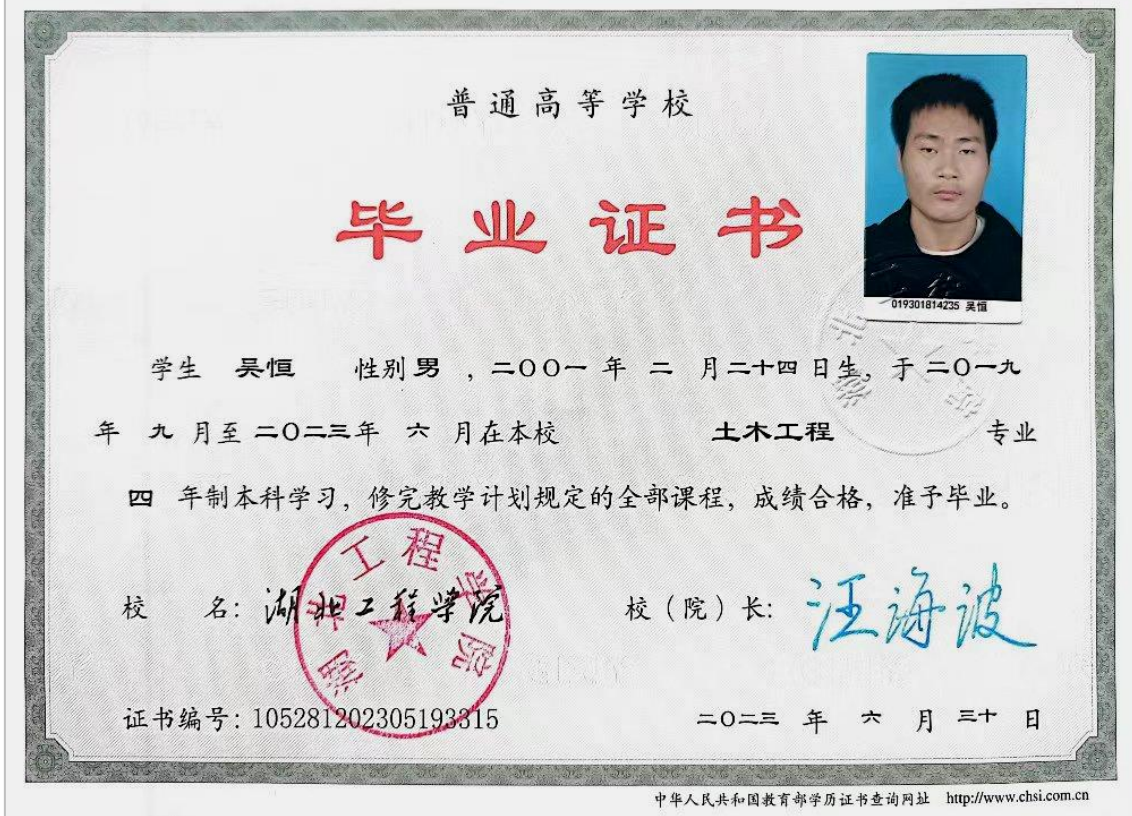 普通高等学校
毕业证书
019301814235 吴恒
学生 吴恒 性别 男 ，二〇〇一 年 二 月二十四日生，于二〇一九
年 九 月至二〇二三年 六 月在本校 土木工程 专业
四 年制本科学习，修完教学计划规定的全部课程，成绩合格，准予毕业。
校 名：湖北工程学院 校（院）长：汪海波
湖北工程学院
证书编号：105281202305193315 二〇二三 年 六 月 三十 日
中华人民共和国教育部学历证书查询网址 http://www.chsi.com.cn